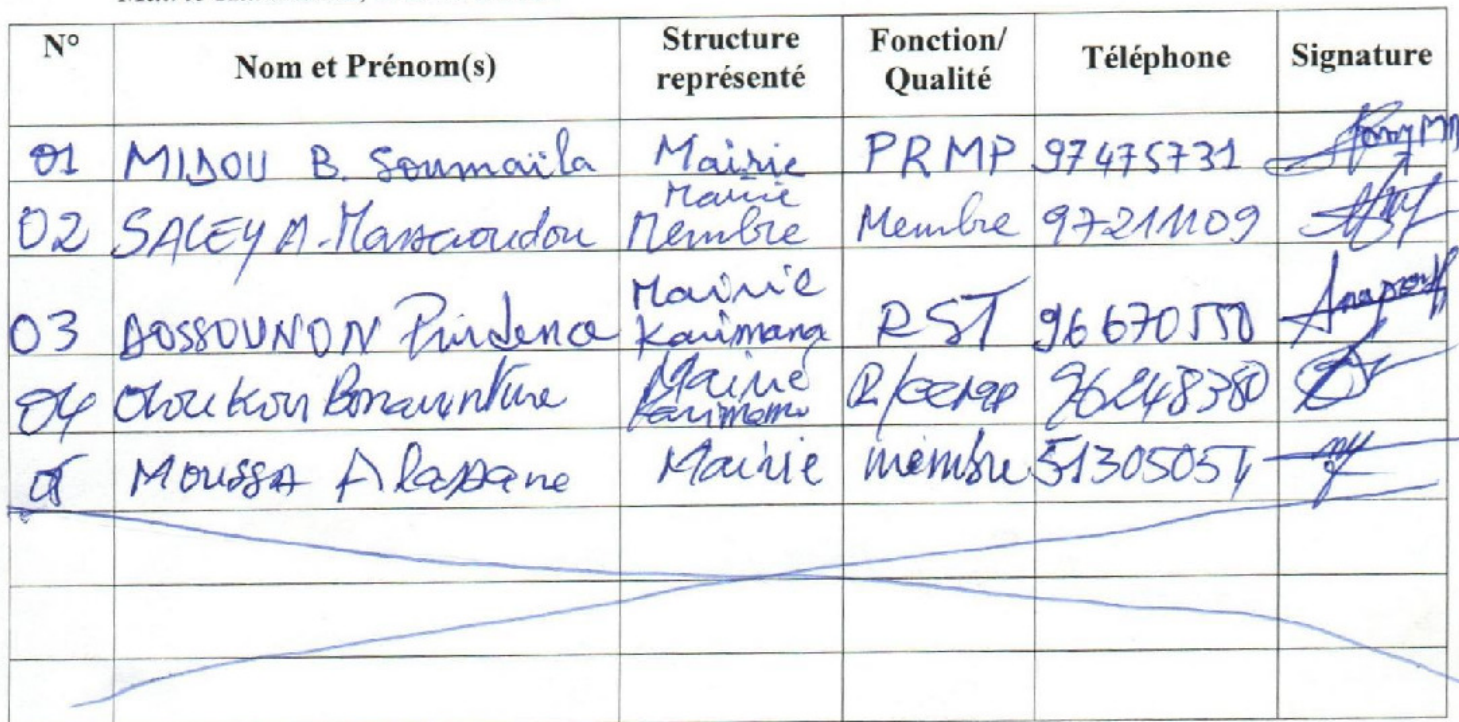 N° Nom et Prénom(s) Structure représenté Fonction/ Qualité Téléphone Signature
01 MIDOU B. Soumaïla Mairie PRMP 97475731
02 SACEY A. Massaoudou Mairie Membre Membre 97211109
03 DOSSOUNON Prudence Mairie Karimama RST 96670550
04 Oloukou Bonaventure Mairie Karimama 96248380
05 MOUSSA Alassane Mairie membre 51305051